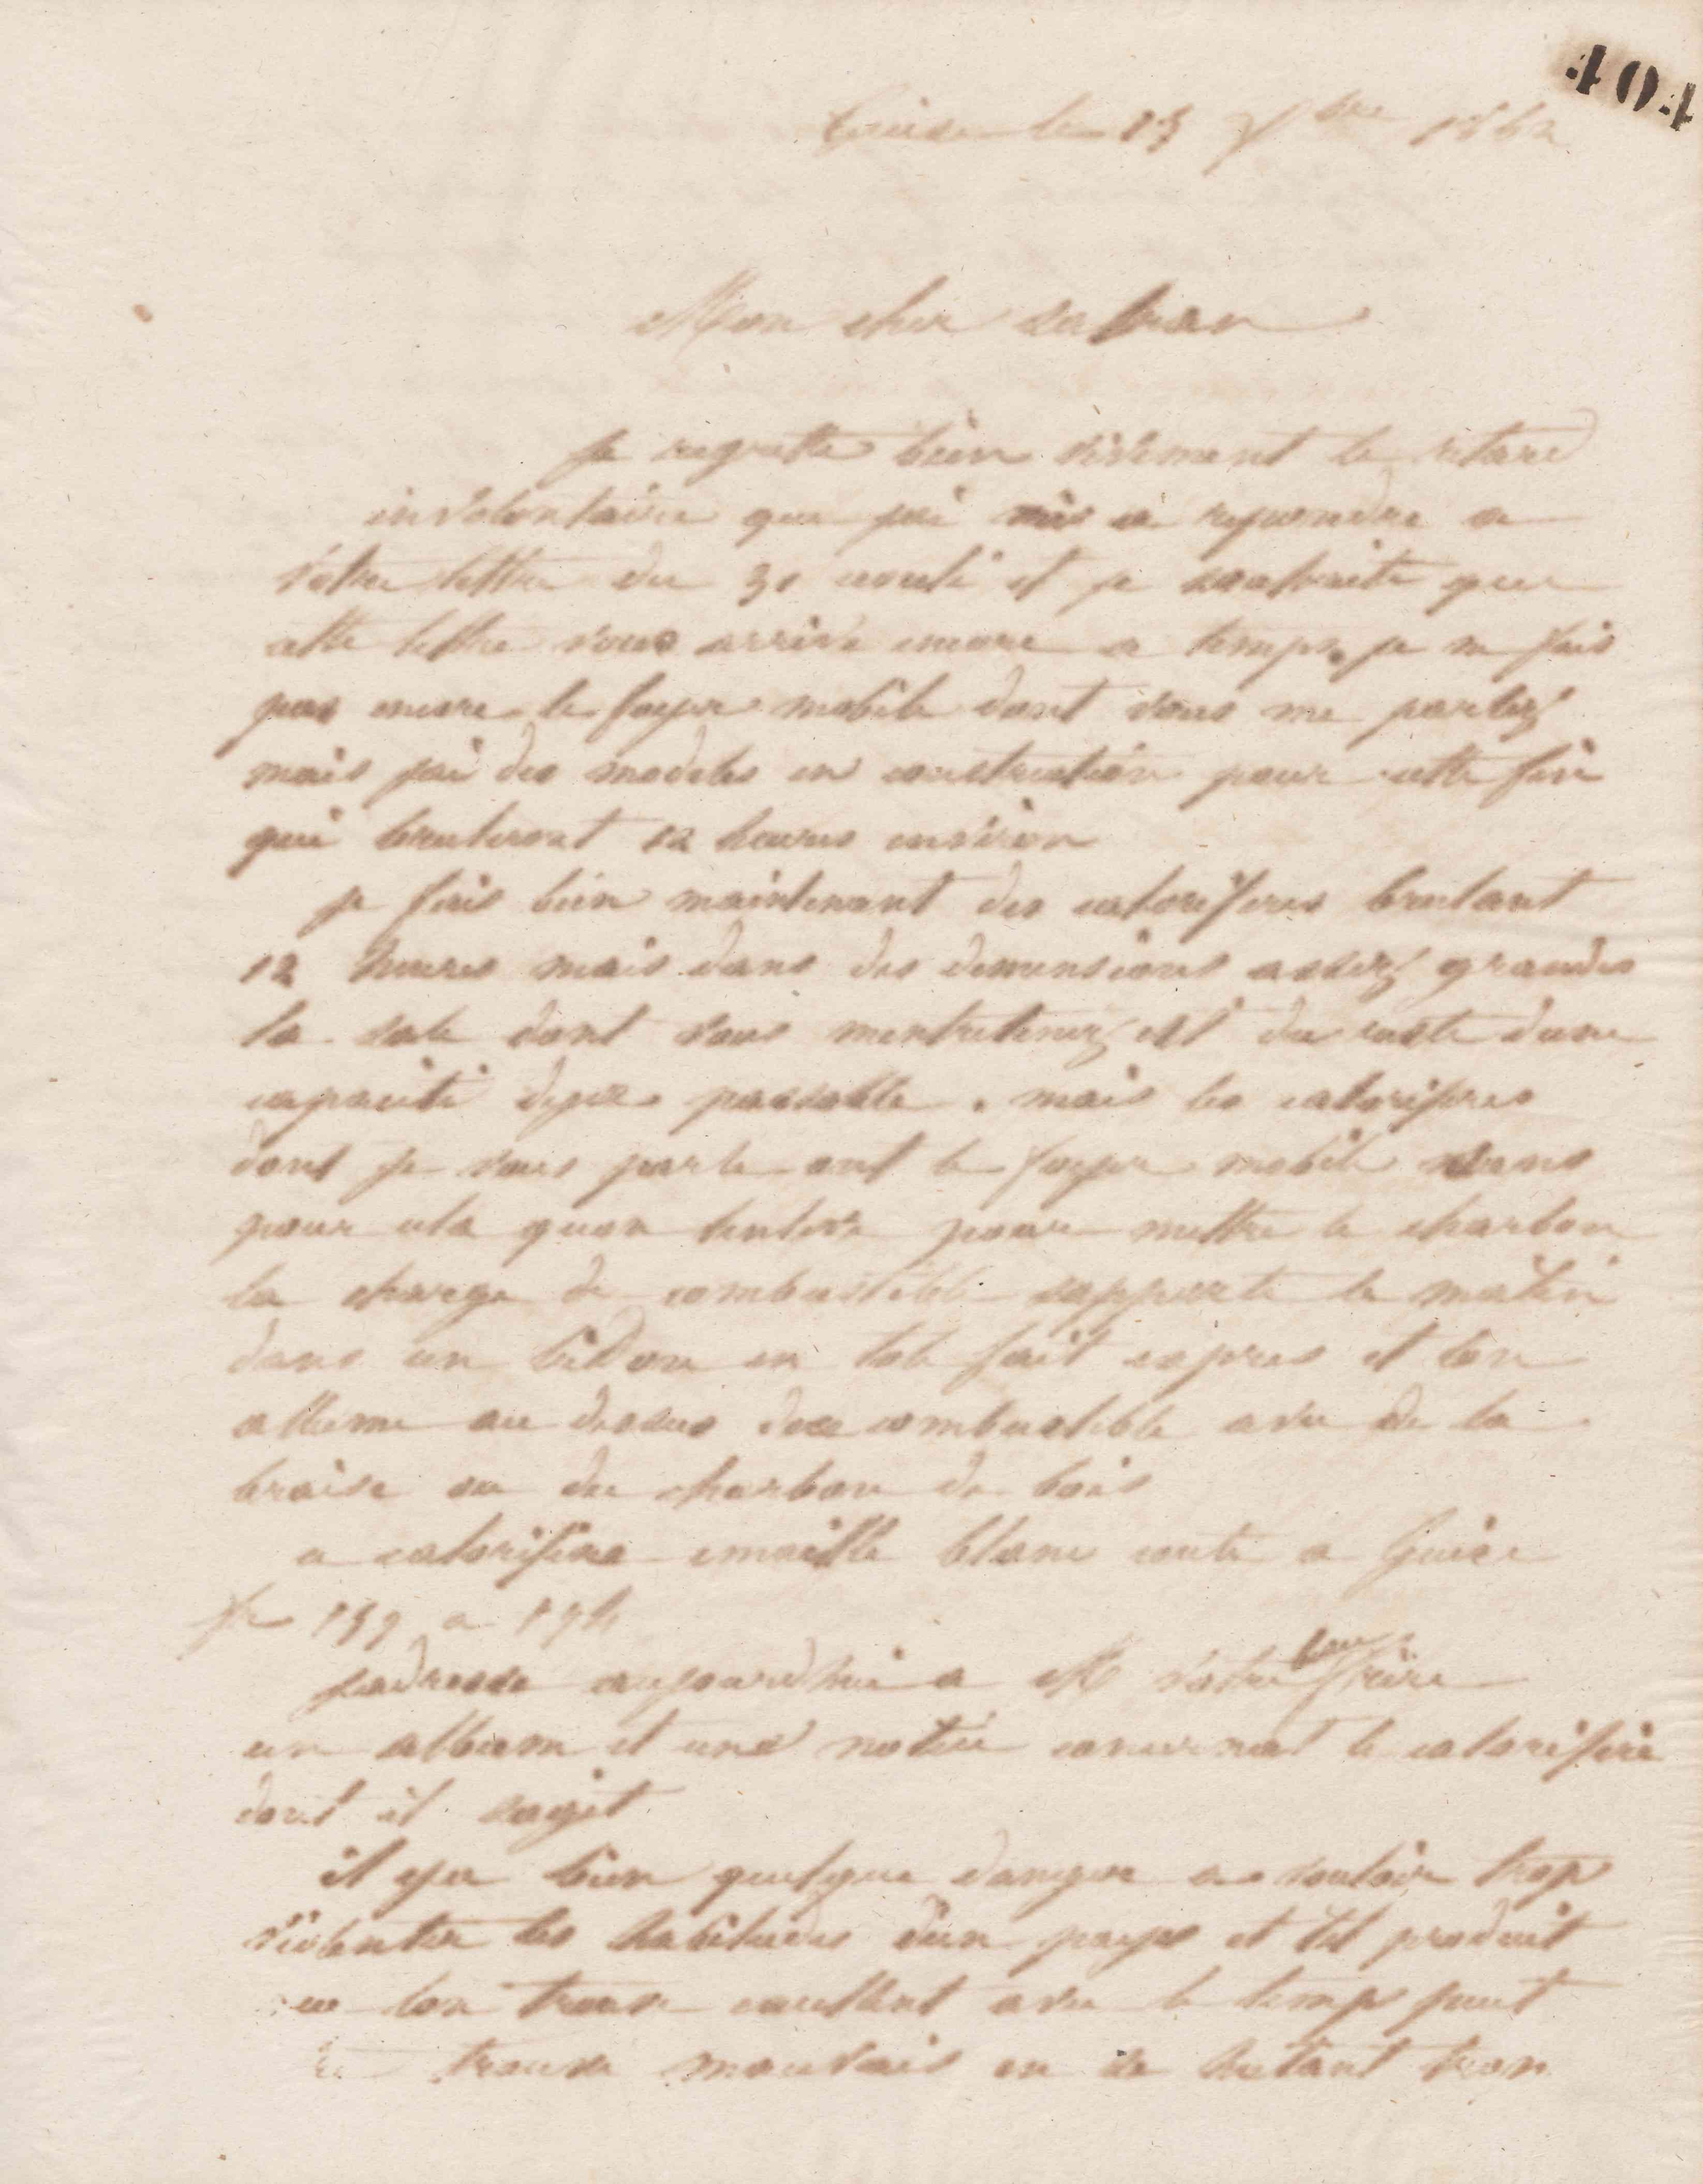 404
Guise le 13 bre 1862
Mon cher
Je regrette bien vivement le retard
involontaire que jai mis a repondre a
votre lettre du 30 aout et je souhaite que
cette lettre vous arrive encore a temps. je ne fais
pas encore le foyer mobile dont vous me parlez
mais jai des modeles en construction pour cette fin
qui bruleront 12 heures environ
je fais bien maintenant des caloriferes brulant
12 heures mais dans des dimensions assez grandes
la sale dont vous mentretenez est du reste dune
capacité deja passable. mais les caloriferes
dont je vous parle ont le foyer mobile
pour cela quon lenleve pour mettre le charbon
la charge de combustible sapporte le matin
dans un bidon en tole fait expres et lon
allume au dessus du combustible avec de la
braise ou du charbon de bois
ce calorifere emaillé blanc coute a Guise
fr 139 a 174
jadresse aujourdhui a M votre beau frère
un album et une notice concernant le calorifere
dont il sagit
il ya bien quelque danger a vouloir trop
violenter les habitudes dun pays et tel produit
que lon trouve excellent avec le temps peut
trouvé mauvais en se hatant trop